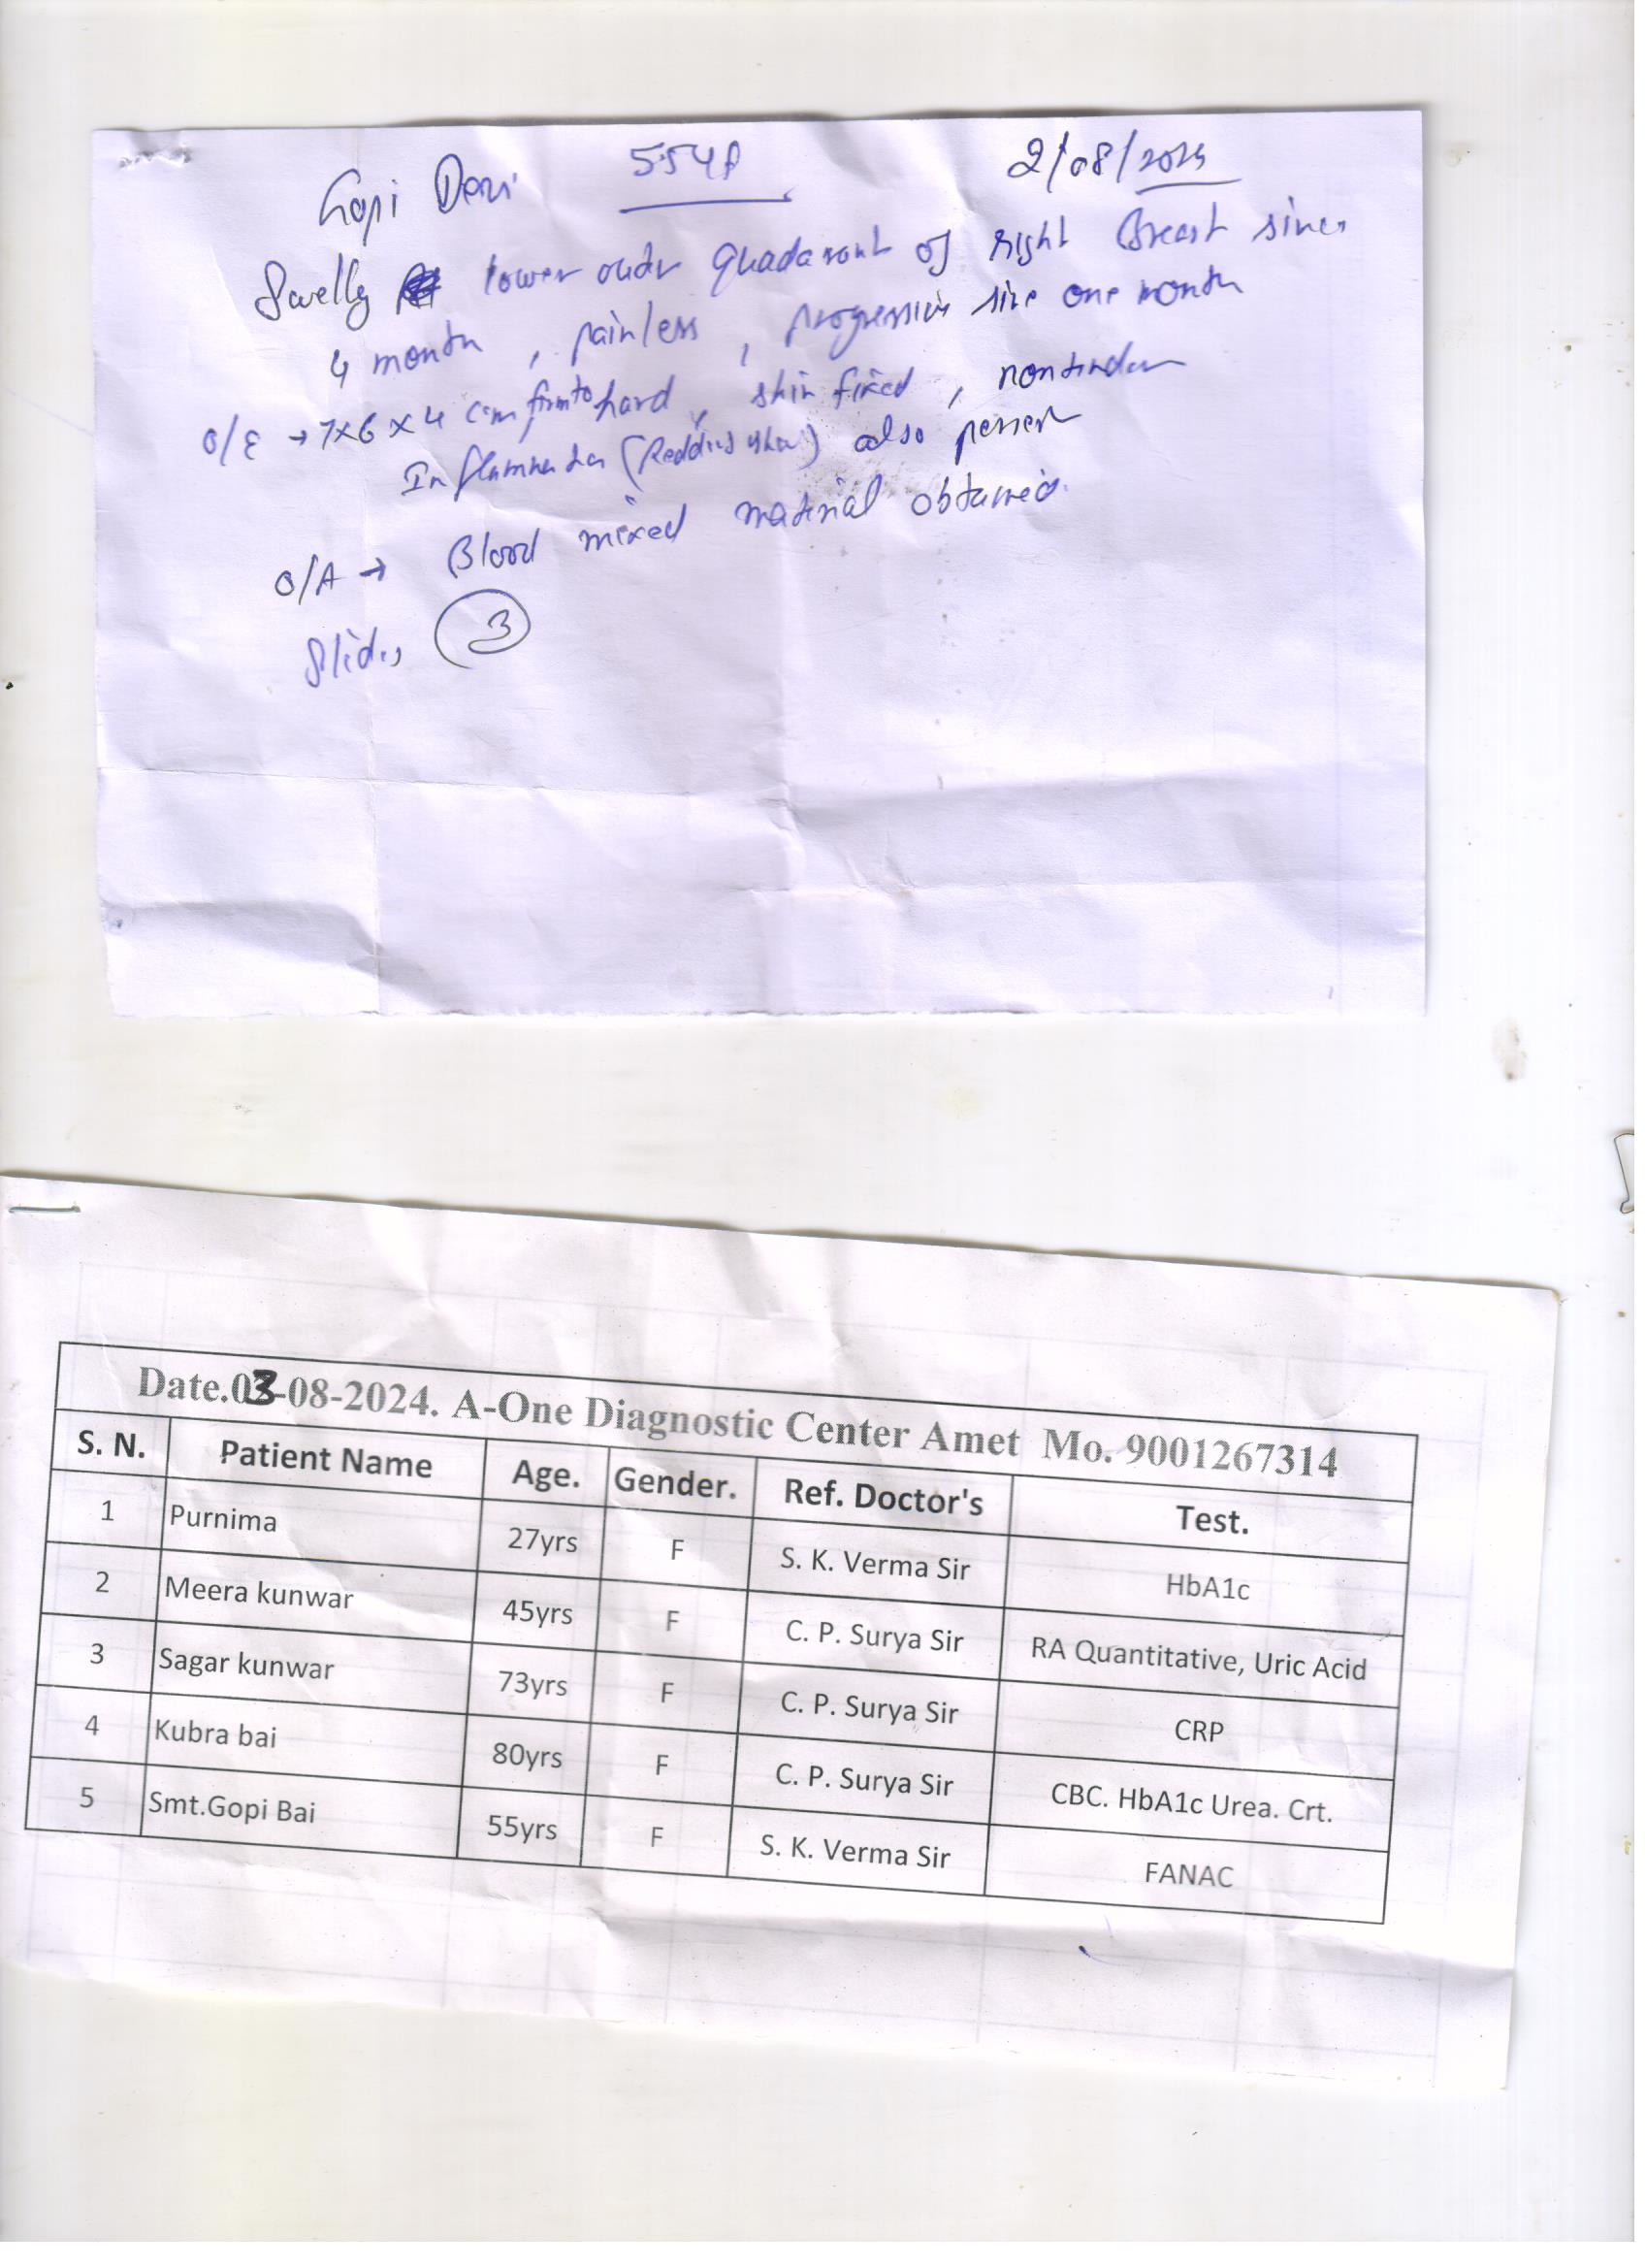 Gopi Devi 55y/F 2/08/2024
Swelling lower outer Quadarant of right Breast since
4 month , painless , progressive size one month
O/E → 7x6x4 cm firm to hard, skin fixed , nontender
Inflammation (Reddish skin) also present
O/A → Blood mixed material obtained.
Slides 3
Date.03-08-2024. A-One Diagnostic Center Amet Mo. 9001267314
S. N. Patient Name Age. Gender. Ref. Doctor's Test.
1 Purnima 27yrs F S. K. Verma Sir HbA1c
2 Meera kunwar 45yrs F C. P. Surya Sir RA Quantitative, Uric Acid
3 Sagar kunwar 73yrs F C. P. Surya Sir CRP
4 Kubra bai 80yrs F C. P. Surya Sir CBC. HbA1c Urea. Crt.
5 Smt.Gopi Bai 55yrs F S. K. Verma Sir FANAC